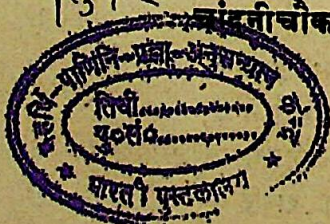 चांदनीचौक
महर्षि-पाणिनि-प्रज्ञा-अनुसन्धान
तिथी............
पु०सं०............
भारती पुस्तकालय